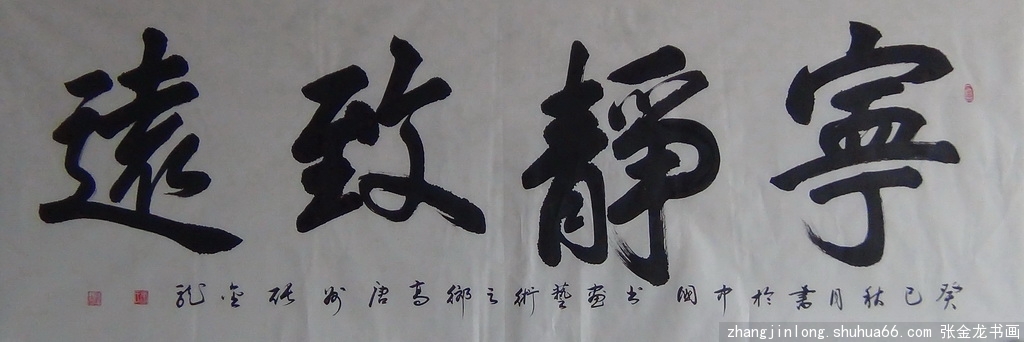 寧靜致遠
癸巳秋月書於中國書画藝術之鄉高唐州張金龙
zhangjinlong.shuhua66.com 张金龙书画